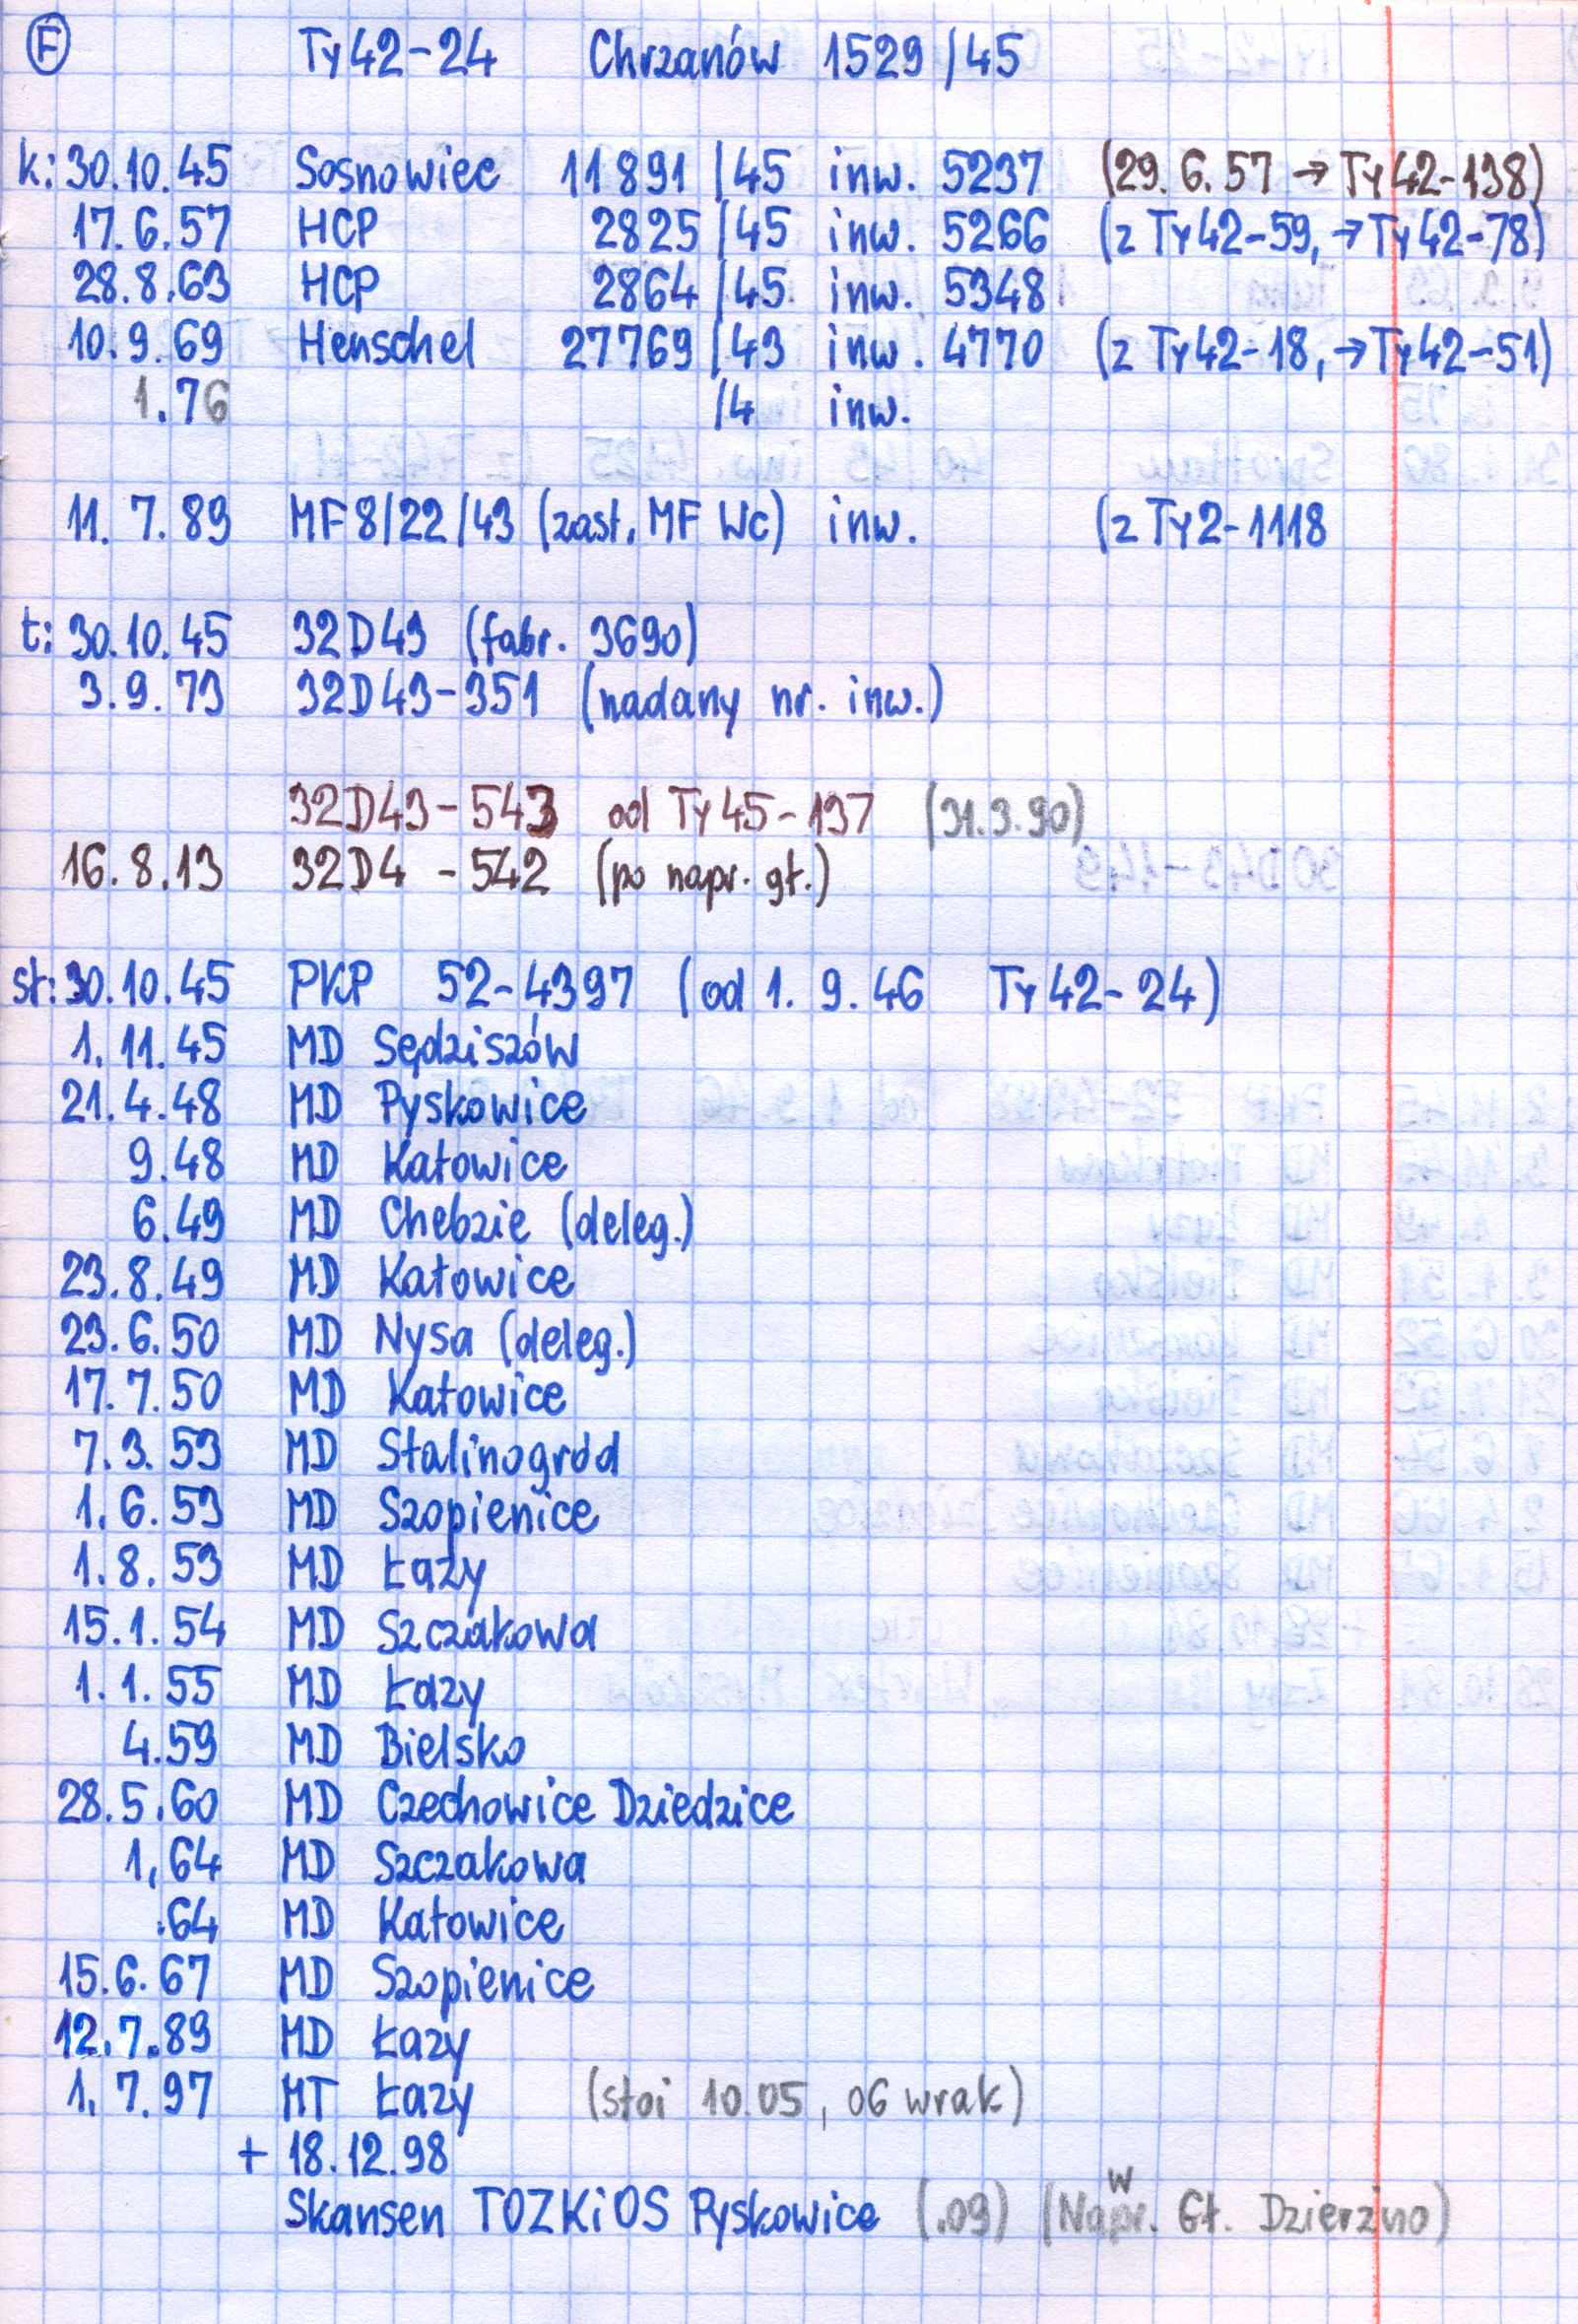 F Ty42-24 Chrzanów 1529/45
k: 30.10.45 Sosnowiec 11891/45 inw. 5237 (29.6.57 → Ty42-138)
17.6.57 HCP 2825/45 inw. 5266 (z Ty42-59, → Ty42-78)
28.8.63 HCP 2864/45 inw. 5348
10.9.69 Henschel 27769/43 inw. 4770 (z Ty42-18, → Ty42-51)
1.76 /4 inw.
11.7.89 MF8/22/43 (zast. MF Wc) inw. (z Ty2-1118
t: 30.10.45 32D43 (fabr. 3690)
3.9.73 32D43-351 (nadany nr. inw.)
32D43-543 od Ty45-137 (31.3.90)
16.8.13 32D4 -542 (po napr. gł.)
st: 30.10.45 PKP 52-4397 (od 1.9.46 Ty42-24)
1.11.45 MD Sędziszów
21.4.48 MD Pyskowice
9.48 MD Katowice
6.49 MD Chebzie (deleg.)
23.8.49 MD Katowice
23.6.50 MD Nysa (deleg.)
17.7.50 MD Katowice
7.3.53 MD Stalinogród
1.6.53 MD Szopienice
1.8.53 MD Łazy
15.1.54 MD Szczakowa
1.1.55 MD Łazy
4.59 MD Bielsko
28.5.60 MD Czechowice Dziedzice
1,64 MD Szczakowa
.64 MD Katowice
15.6.67 MD Szopienice
12.7.89 MD Łazy
1.7.97 MT Łazy (stoi 10.05, 06 wrak)
+ 18.12.98
Skansen TOZKiOS Pyskowice (.09) (w Napr. Gł. Dzierżno)